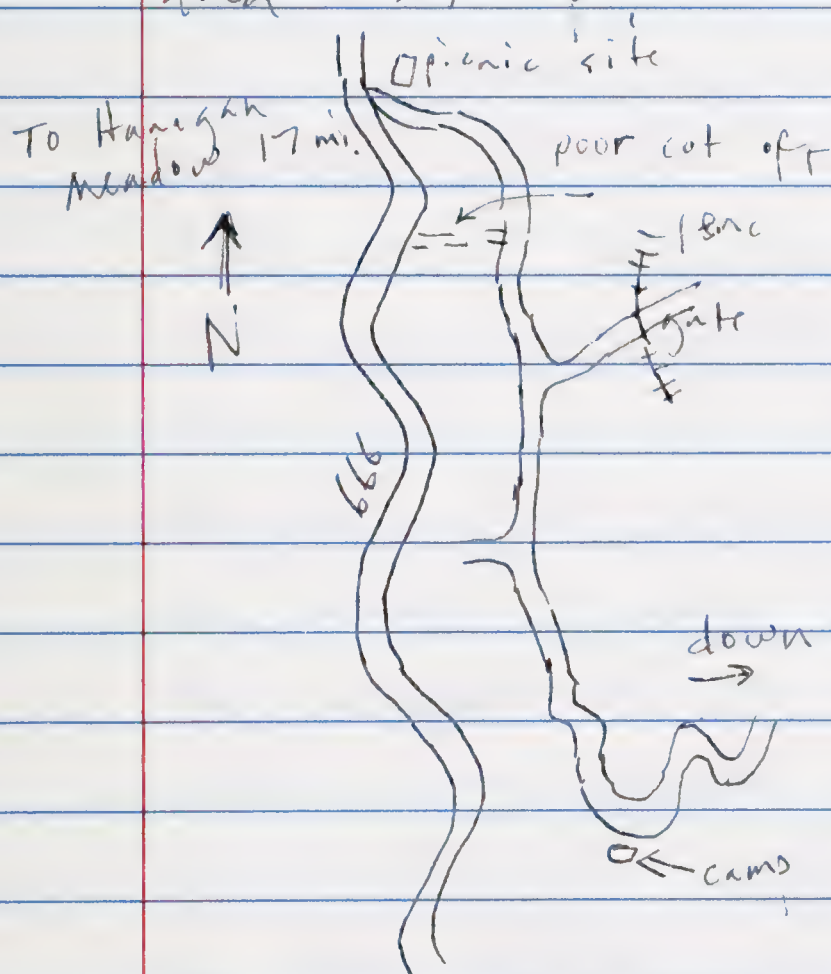 picnic site
To Hanagan
Meadow 17 mi.
poor cut off
N
gate
666
down
camp